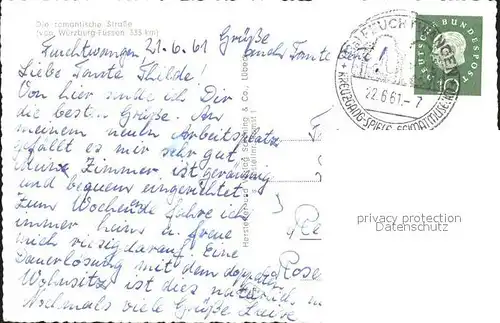 Die romantische Straße
(von Würzburg-Füssen 333 km)
Feuchtwangen 21.6.61
Grüße
Tante
Liebe Tante Thilde!
Von hier sende ich Dir
die besten Grüße. An
meinem neuen Arbeitsplatz
gefällt es mir sehr gut,
Zimmer ist geräumig
und bequem eingerichtet
Zum Wochenende fahre ich
immer heim u. freue
mich riesig darauf. Eine
Dauerlösung mit dem doppelten
Wohnsitz ist dies natürlich n
Nochmals viele Grüße Luise
FEUCHTWANGEN
22.6.61.-7
KREUZGANG-SPIELE
DEUTSCHE BUNDESPOST
10
Re
Rose
privacy protection
Datenschutz